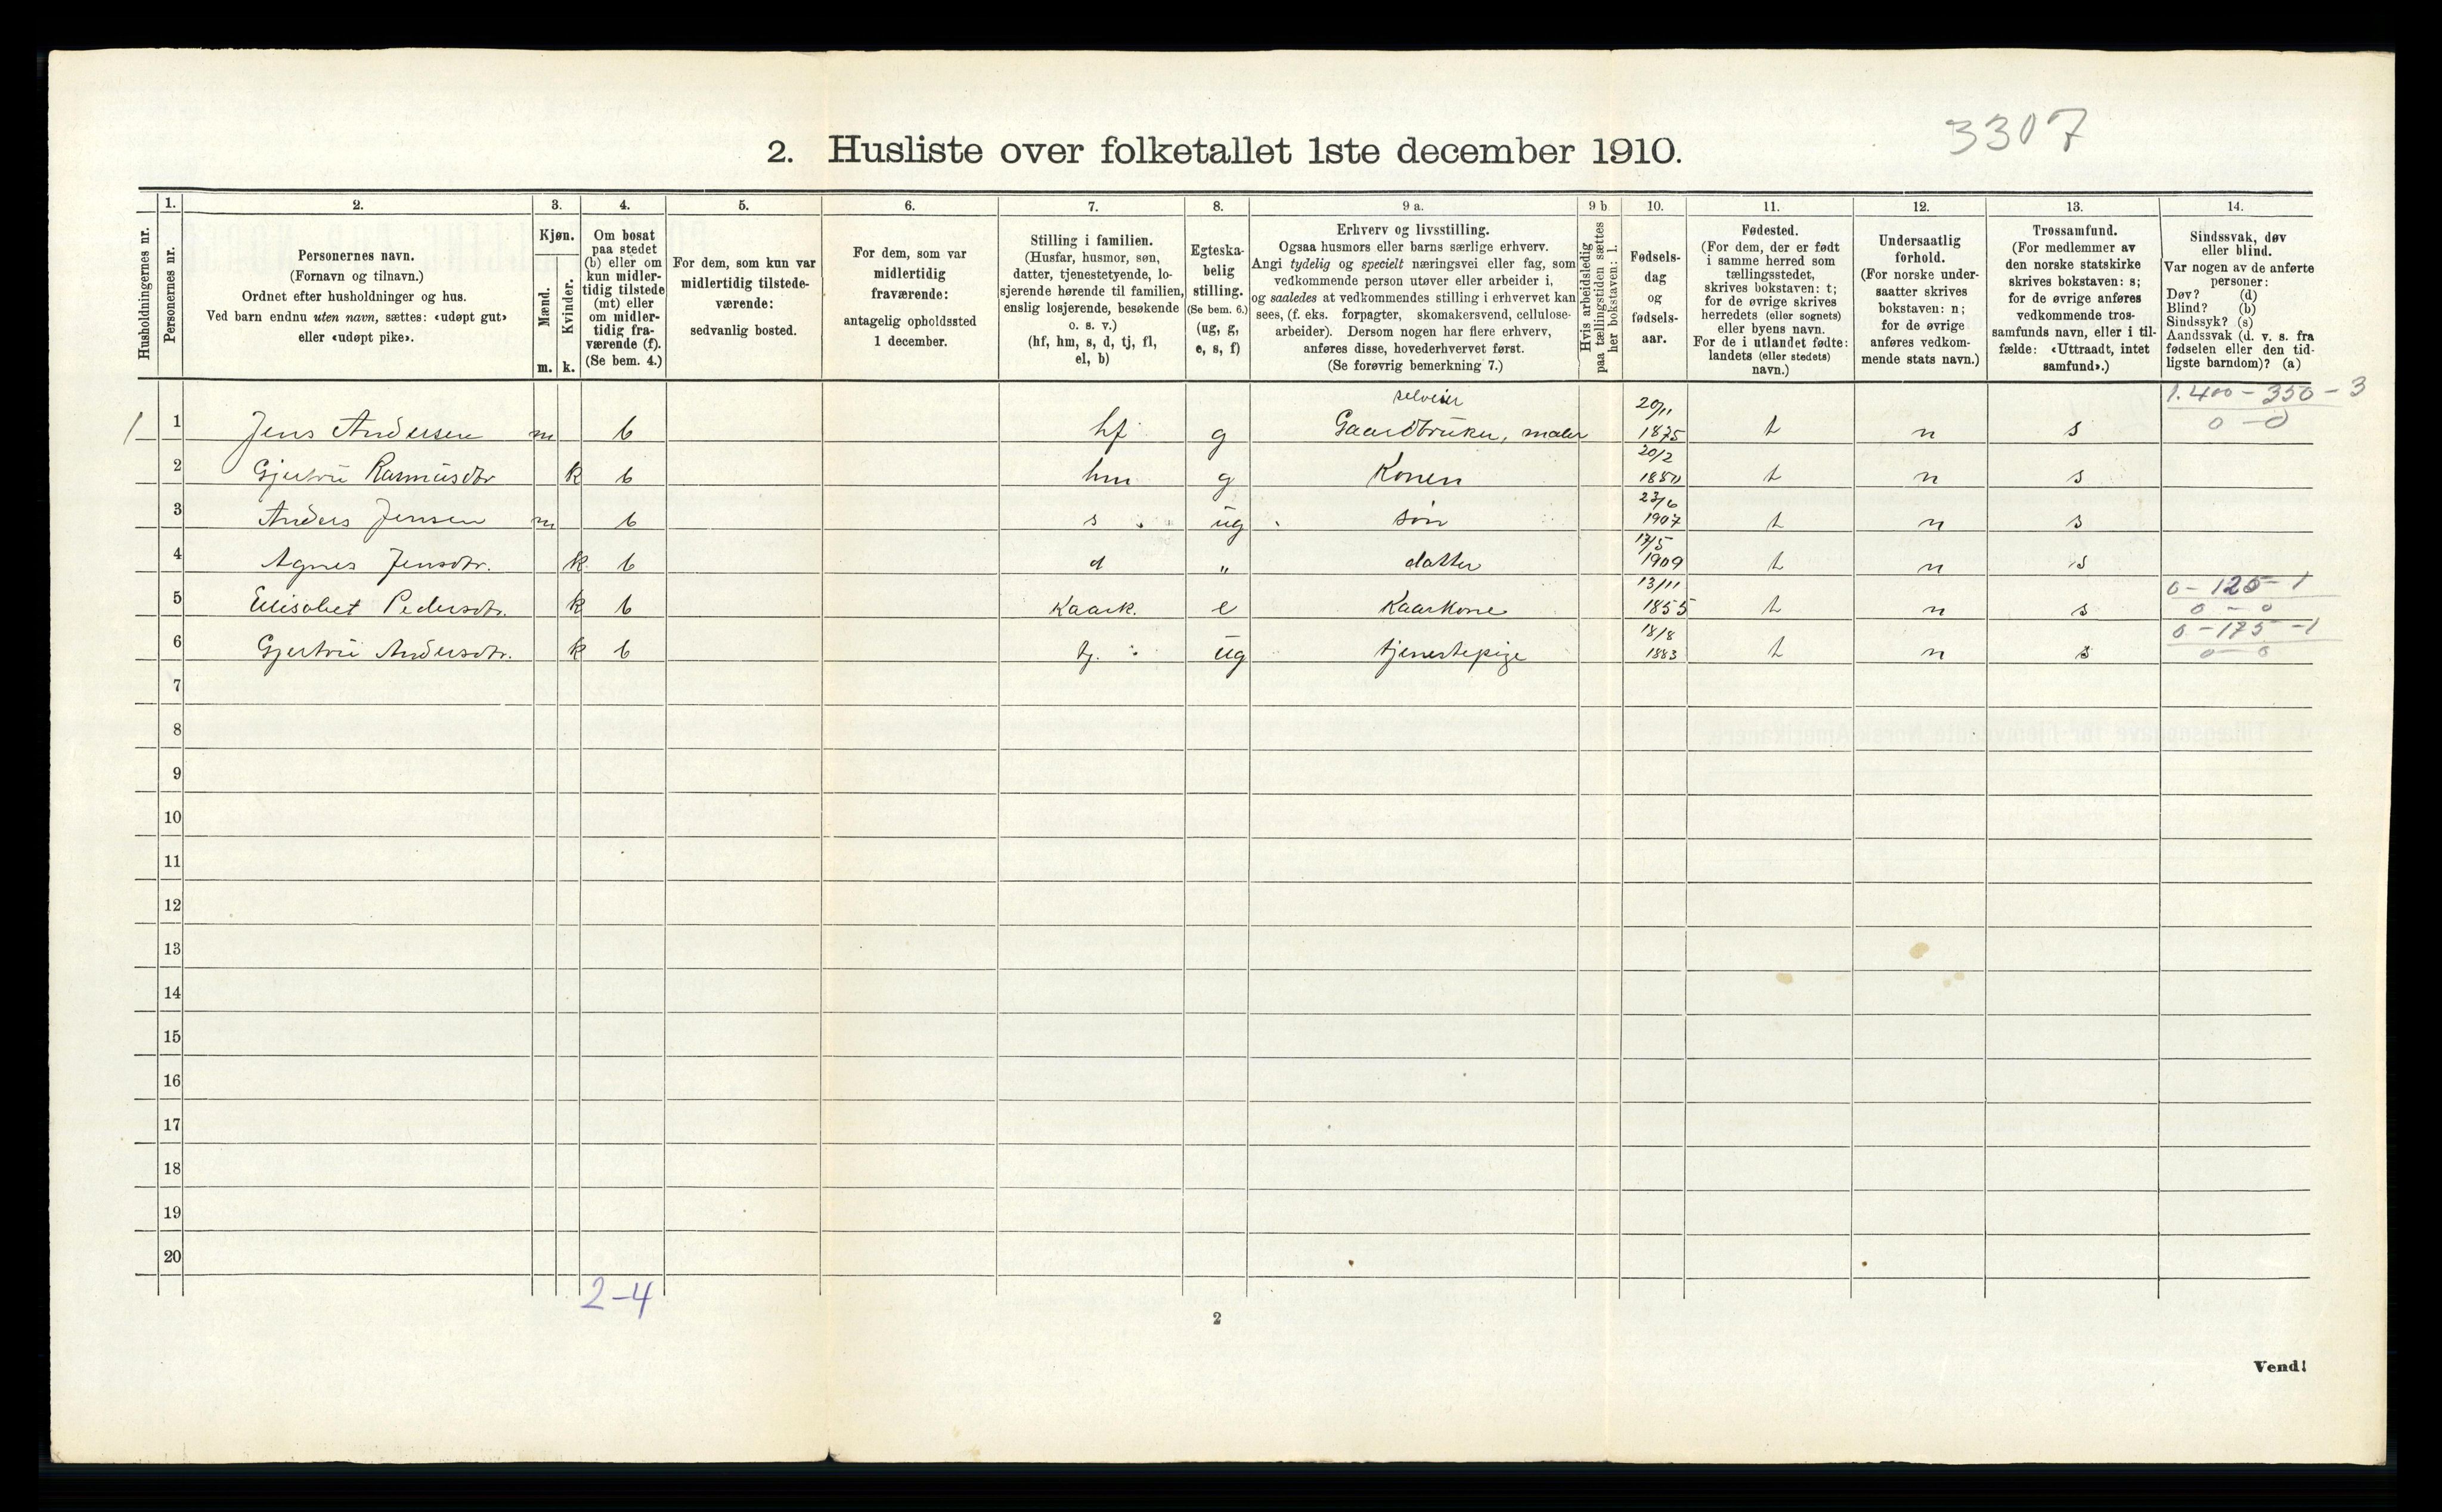 3307
2. Husliste over folketallet 1ste december 1910.
Husholdningernes nr.
1.
Personernes nr.
2.
Personernes navn.
(Fornavn og tilnavn.)
Ordnet efter husholdninger og hus.
Ved barn endnu uten navn, sættes: «udøpt gut»
eller «udøpt pike».
3.
Kjøn.
Mænd.
Kvinder.
m. k.
4.
Om bosat
paa stedet
(b) eller om
kun midler-
tidig tilstede
(mt) eller
om midler-
tidig fra-
værende (f).
(Se bem. 4.)
5.
For dem, som kun var
midlertidig tilstede-
værende:
sedvanlig bosted.
6.
For dem, som var
midlertidig
fraværende:
antagelig opholdssted
1 december.
7.
Stilling i familien.
(Husfar, husmor, søn,
datter, tjenestetyende, lo-
sjerende hørende til familien,
enslig losjerende, besøkende
o. s. v.)
(hf, hm, s, d, tj, fl,
el, b)
8.
Egteska-
belig
stilling.
(Se bem. 6.)
(ug, g,
e, s, f)
9 a.
Erhverv og livsstilling.
Ogsaa husmors eller barns særlige erhverv.
Angi tydelig og specielt næringsvei eller fag, som
vedkommende person utøver eller arbeider i,
og saaledes at vedkommendes stilling i erhvervet kan
sees, (f. eks. forpagter, skomakersvend, cellulose-
arbeider). Dersom nogen har flere erhverv,
anføres disse, hovederhvervet først.
(Se forøvrig bemerkning 7.)
9 b
Hvis arbeidsledig
paa tællingstiden sættes
her bokstaven: l.
10.
Fødsels-
dag
og
fødsels-
aar.
11.
Fødested.
(For dem, der er født
i samme herred som
tællingsstedet,
skrives bokstaven: t;
for de øvrige skrives
herredets (eller sognets)
eller byens navn.
For de i utlandet fødte:
landets (eller stedets)
navn.)
12.
Undersaatlig
forhold.
(For norske under-
saatter skrives
bokstaven: n;
for de øvrige
anføres vedkom-
mende stats navn.)
13.
Trossamfund.
(For medlemmer av
den norske statskirke
skrives bokstaven: s;
for de øvrige anføres
vedkommende tros-
samfunds navn, eller i til-
fælde: «Uttraadt, intet
samfund».)
14.
Sindssvak, døv
eller blind.
Var nogen av de anførte
personer:
Døv? (d)
Blind? (b)
Sindssyk? (s)
Aandssvak (d. v. s. fra
fødselen eller den tid-
ligste barndom)? (a)
selveier 20/11 1.400 - 350 - 3
1 1 Jens Andersen m b hf g Gaardbruker, maler 1875 t n s 0 - 0
20/2
2 Gjertrü Rasmusdtr k b hm g Konen t n s
23/6
3 Anders Jensen m b s ug søn 1907 t n s
17/5
4 Agnes Jensdtr. k b d „ datter 1909 t n s
13/11 0 - 125 - 1
5 Elisabet Pedersdtr. k b Kaark. e Kaarkone 1855 t n s 0 - 0
18/8 0 - 175 - 1
6 Gjertrü Andersdtr. k b tj. ug tjenestepige 1883 t n s 0 0
7
8
9
10
11
12
13
14
15
16
17
18
19
20
2-4
2
Vend!